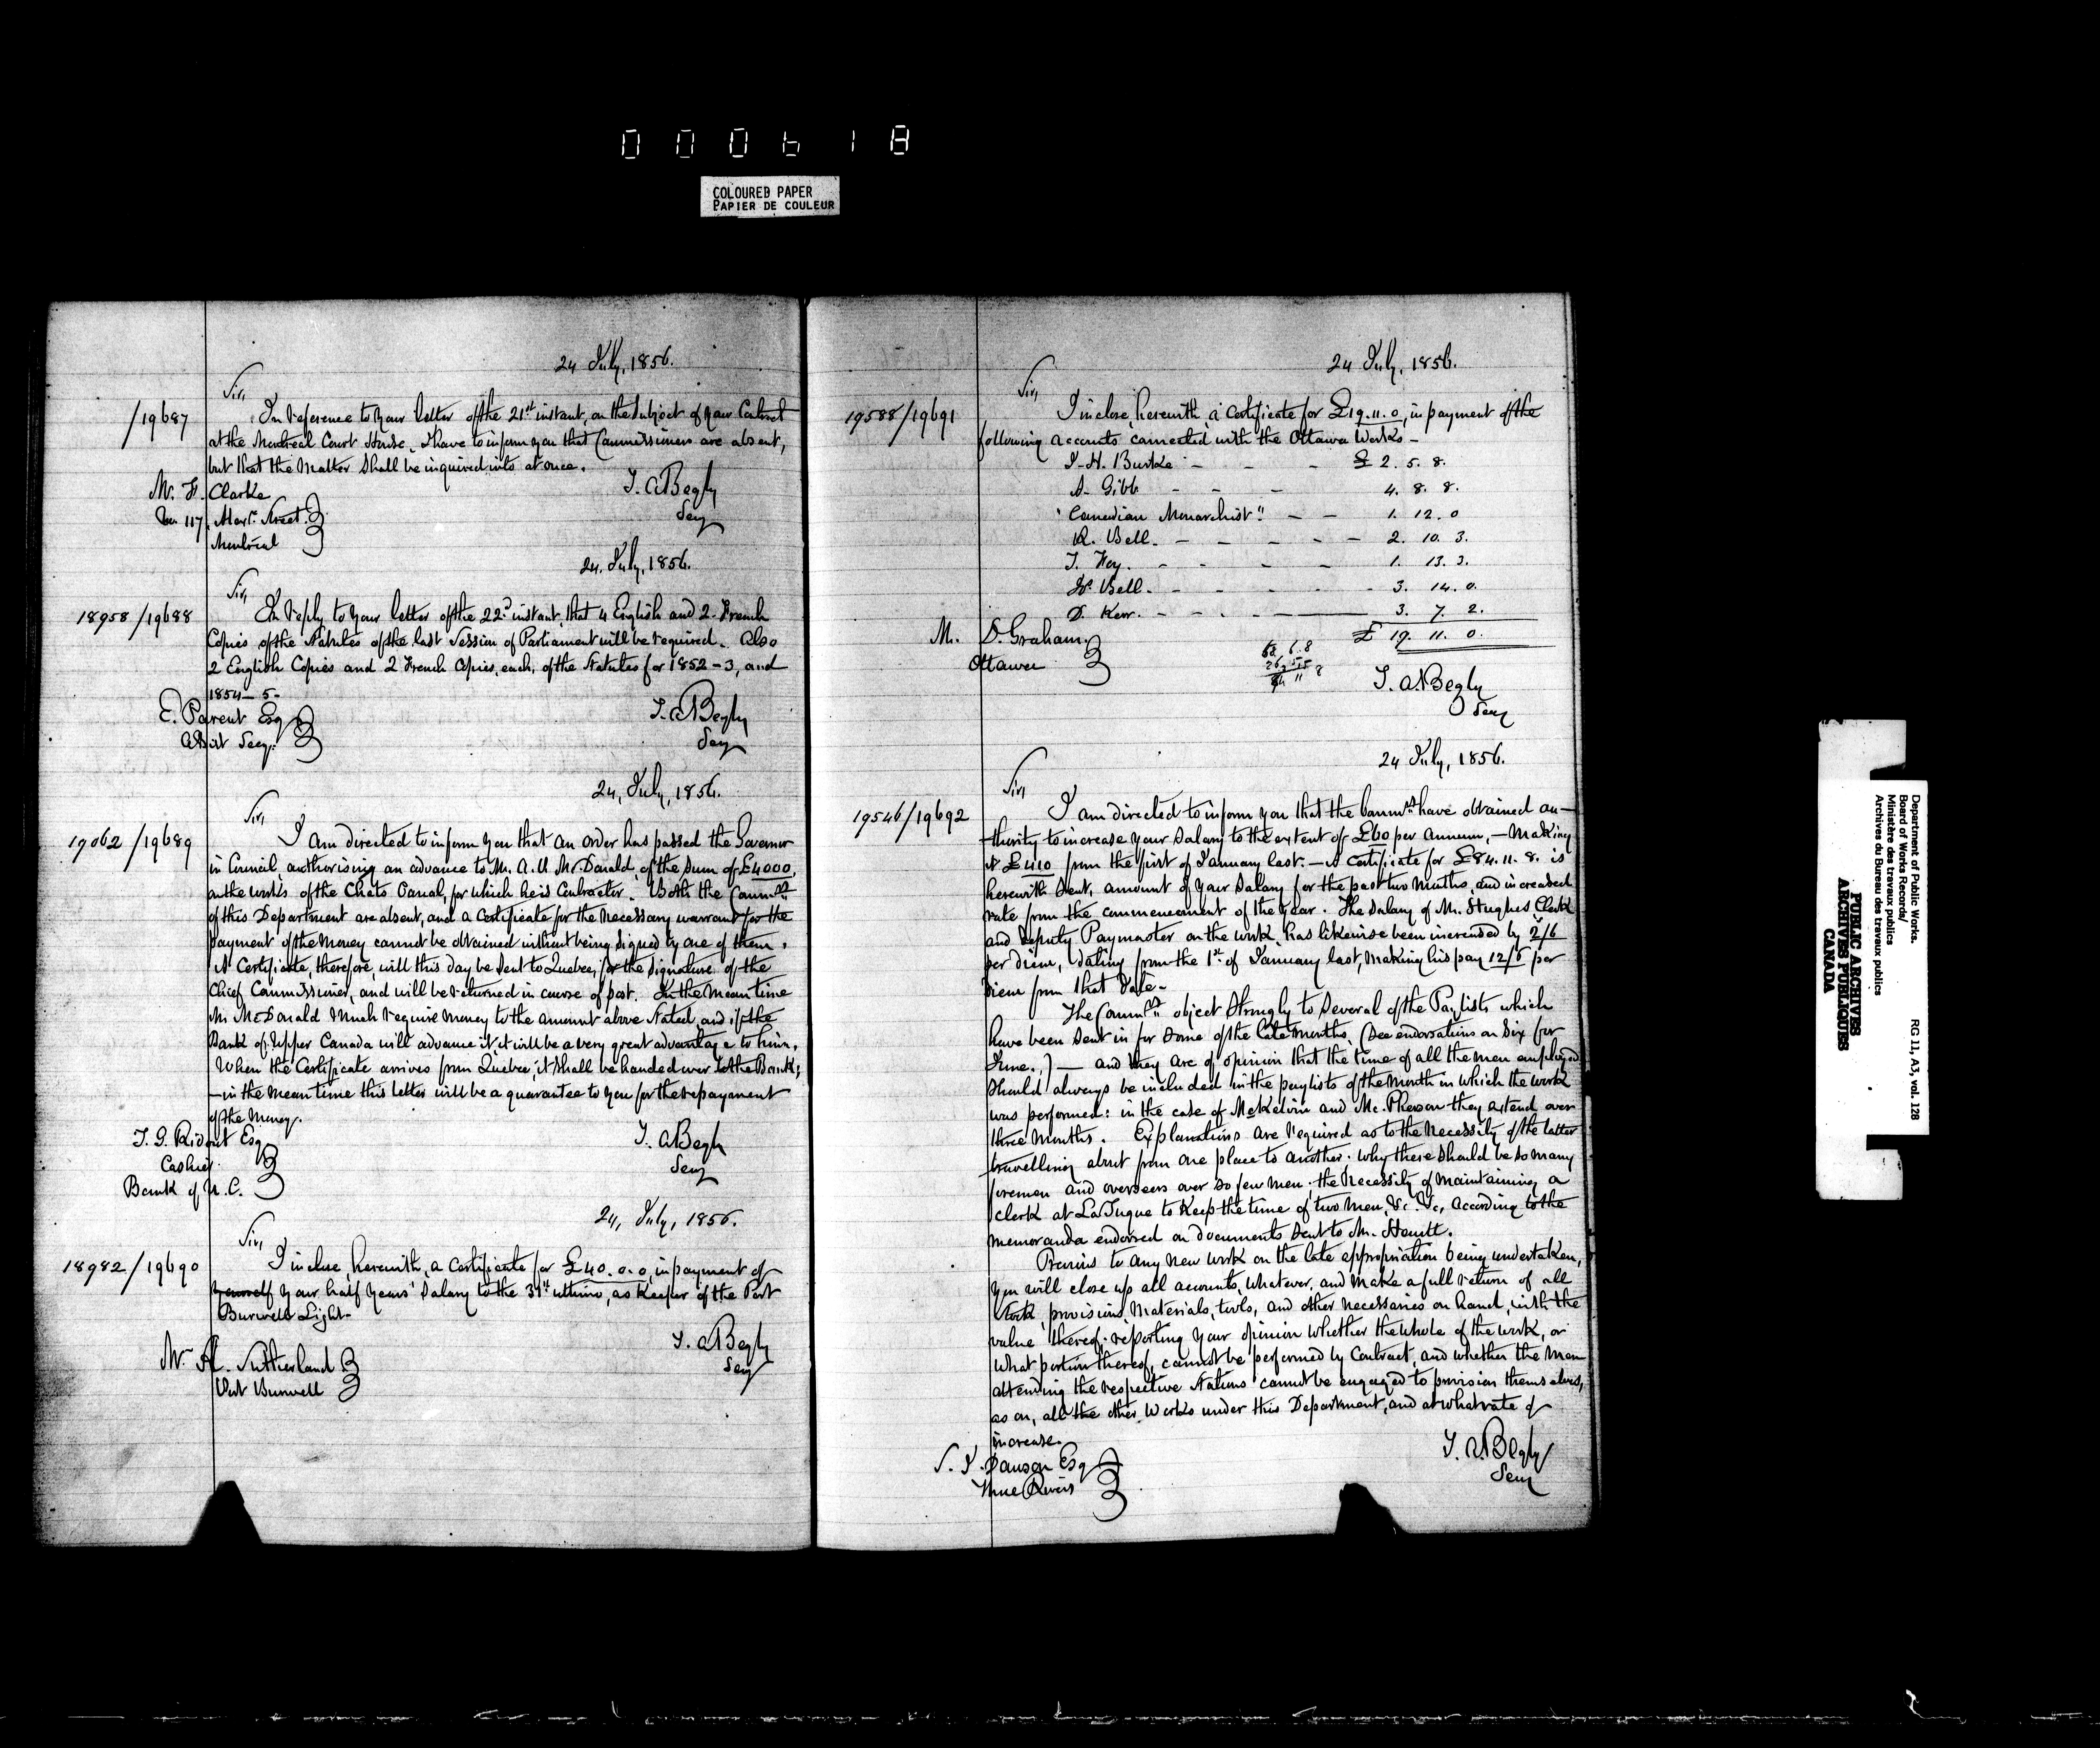 000618
COLOURED PAPER
PAPIER DE COULEUR
24 July, 1856.
Sir,
/19687
In reference to your letter of the 21st instant, on the subject of your Contract
at the Montreal Court House, I have to inform you that Commissioners are absent,
but that the matter shall be inquired into at once.
M. H. Clarke
117,
Montreal
T. A. Begly
Secy
24. July, 1856.
Sir,
18958/19688
In reply to your letter of the 22d instant, that 4 English and 2 French
Copies of the Statutes of the last Session of Parliament will be required. Also
2 English Copies and 2 French Copies, each, of the Statutes for 1852-3, and
1854-5-
E. Parent Esq
Asst Secy.
T. A. Begly
Secy
24, July, 1856.
Sir,
19062/19689
I am directed to inform you that an order has passed the Governor
in Council authorising an advance to Mr. A. P. McDonald, of the sum of £4000,
on the works of the Chats Canal, for which he is Contractor. Both the Commrs
of this Department are absent, and a Certificate for the necessary warrant for the
payment of the money cannot be obtained without being signed by one of them.
A Certificate, therefore, will this day be sent to Quebec, for the signature of the
Chief Commissioner, and will be returned in course of post. In the mean time
Mr McDonald much require money to the amount above stated, and if the
Bank of Upper Canada will advance it, it will be a very great advantage to him.
When the Certificate arrives from Quebec, it shall be handed over to the Bank;
- in the mean time this letter will be a guarantee to you for the repayment
of the money.
T. G. Ridout Esq
Cashier
Bank of U. C.
T. A. Begly
Secy
24, July, 1856.
Sir,
18982/19690
I inclose, herewith, a Certificate for £40.0.0, in payment of
yourself your half years' salary to the 31st ultimo, as Keeper of the Port
Burwell Light-
Mr. A. Sutherland
Port Burwell
T. A. Begly
Secy
24 July, 1856.
Sir,
19588/19691
I inclose, herewith, a Certificate for £19.11.0, in payment of the
following accounts connected with the Ottawa Works -
J. H. Burke - - - £ 2. 5. 8.
A. Gibb - - - 4. 8. 8.
"Canadian Monarchist" - - 1. 12. 0
R. Bell. - - - - - 2. 10. 3.
T. Hey. - - - - 1. 13. 3.
W. Bell. - - - - 3. 14. 0.
D. Kerr. - - - - 3. 7. 2.
£ 19. 11. 0.
M. D. Graham.
Ottawa
T. A. Begly
Secy
24 July, 1856.
Sir,
19546/19692
I am directed to inform you that the Commrs have obtained au-
thority to increase your salary to the extent of £60 per annum, - making
it £410 from the first of January last. - A Certificate for £84.11.8. is
herewith sent, amount of your salary for the past two months, and increased
rate from the commencement of the year. The salary of Mr. Hughes Clerk
and Deputy Paymaster on the work, has likewise been increased by 2/6
per diem, dating from the 1st of January last, making his pay 12/6 per
diem from that date-
The Commrs object strongly to several of the Paylists which
have been sent in for some of the late months, (see endorsations on six for
June.,) - and they are of opinion that the time of all the men employed
should always be included in the paylists of the month in which the work
was performed: in the case of McKelvin and Mc.Pherson they extend over
three months. Explanations are required as to the necessity of the latter
travelling about from one place to another; why there should be so many
foremen and overseers over so few men; the necessity of maintaining a
clerk at La Tuque to keep the time of two men, &c. &c, according to the
memoranda endorsed on documents sent to Mr. Hewitt.
Previous to any new work on the late appropriation being undertaken,
you will close up all accounts, whatever, and make a full return of all
stock, provisions, materials, tools, and other necessaries on hand, with the
value thereof; reporting your opinion whether the whole of the work, or
what portion thereof, cannot be performed by Contract, and whether the men
attending the respective stations cannot be engaged to provision themselves,
as on, all the other Works under this Department, and at what rate of
increase.
S. J. Dawson Esq
Three Rivers
T. A. Begly
Secy
Department of Public Works.
Board of Works Records/
Ministère des travaux publics
Archives du Bureau des travaux publics
RG 11, A3, vol. 128
PUBLIC ARCHIVES
ARCHIVES PUBLIQUES
CANADA